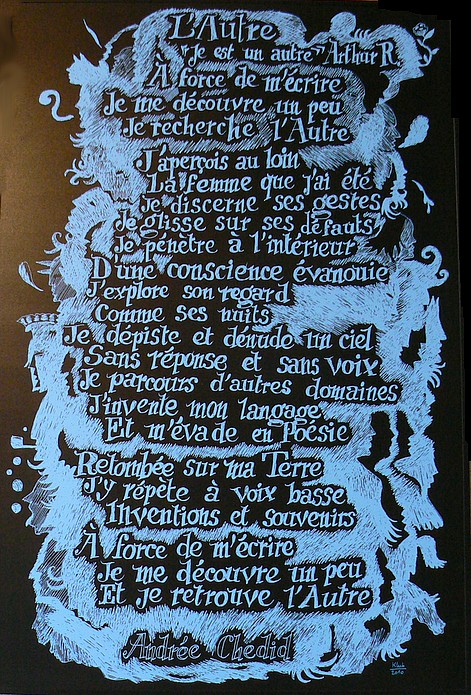 L'Autre
"Je est un autre" Arthur R.
À force de m'écrire
Je me découvre un peu
Je recherche l'Autre
J'aperçois au loin
La femme que j'ai été
Je discerne ses gestes
Je glisse sur ses défauts
Je pénètre à l'intérieur
D'une conscience évanouie
J'explore son regard
Comme ses nuits
Je dépiste et dénude un ciel
Sans réponse et sans voix
Je parcours d'autres domaines
J'invente mon langage
Et m'évade en Poésie
Retombée sur ma Terre
J'y répète à voix basse
Inventions et souvenirs
À force de m'écrire
Je me découvre un peu
Et je retrouve l'Autre
Andrée Chedid